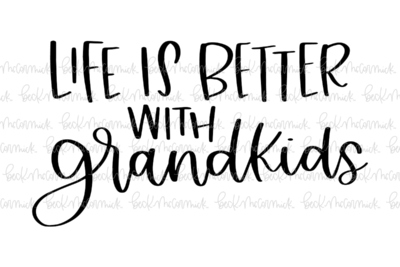 LIFE IS BETTER
WITH
grandkids